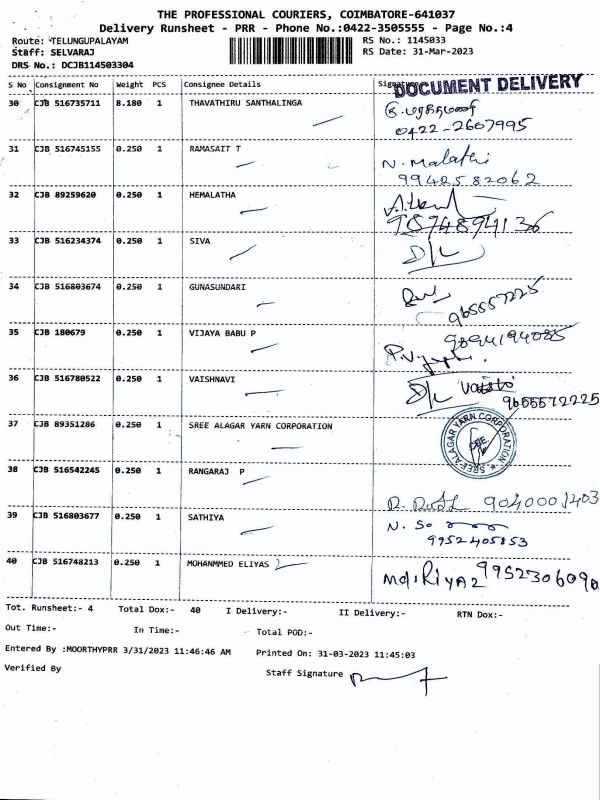 THE PROFESSIONAL COURIERS, COIMBATORE-641037
Delivery Runsheet - PRR - Phone No.:0422-3505555 - Page No.:4
Route: TELUNGUPALAYAM RS No.: 1145033
Staff: SELVARAJ RS Date: 31-Mar-2023
DRS No.: DCJB114503304
DOCUMENT DELIVERY
S No Consignment No Weight PCS Consignee Details Signature
30 CJB 516735711 8.180 1 THAVATHIRU SANTHALINGA
0422-2607995
31 CJB 516745155 0.250 1 RAMASAIT T N. Malathi
9942582062
32 CJB 89259620 0.250 1 HEMALATHA
33 CJB 516234374 0.250 1 SIVA D/L
34 CJB 516803674 0.250 1 GUNASUNDARI
965557225
35 CJB 180679 0.250 1 VIJAYA BABU P
36 CJB 516780522 0.250 1 VAISHNAVI D/L
9655572225
37 CJB 89351286 0.250 1 SREE ALAGAR YARN CORPORATION
SREE ALAGAR YARN CORPORATION
CBE
38 CJB 516542245 0.250 1 RANGARAJ P
39 CJB 516803677 0.250 1 SATHIYA
9952405853
40 CJB 516748213 0.250 1 MOHANMMED ELIYAS Md.RiyAz 9952306090
Tot. Runsheet:- 4 Total Dox:- 40 I Delivery:- II Delivery:- RTN Dox:-
Out Time:- In Time:- Total POD:-
Entered By :MOORTHYPRR 3/31/2023 11:46:46 AM Printed On: 31-03-2023 11:45:03
Verified By Staff Signature